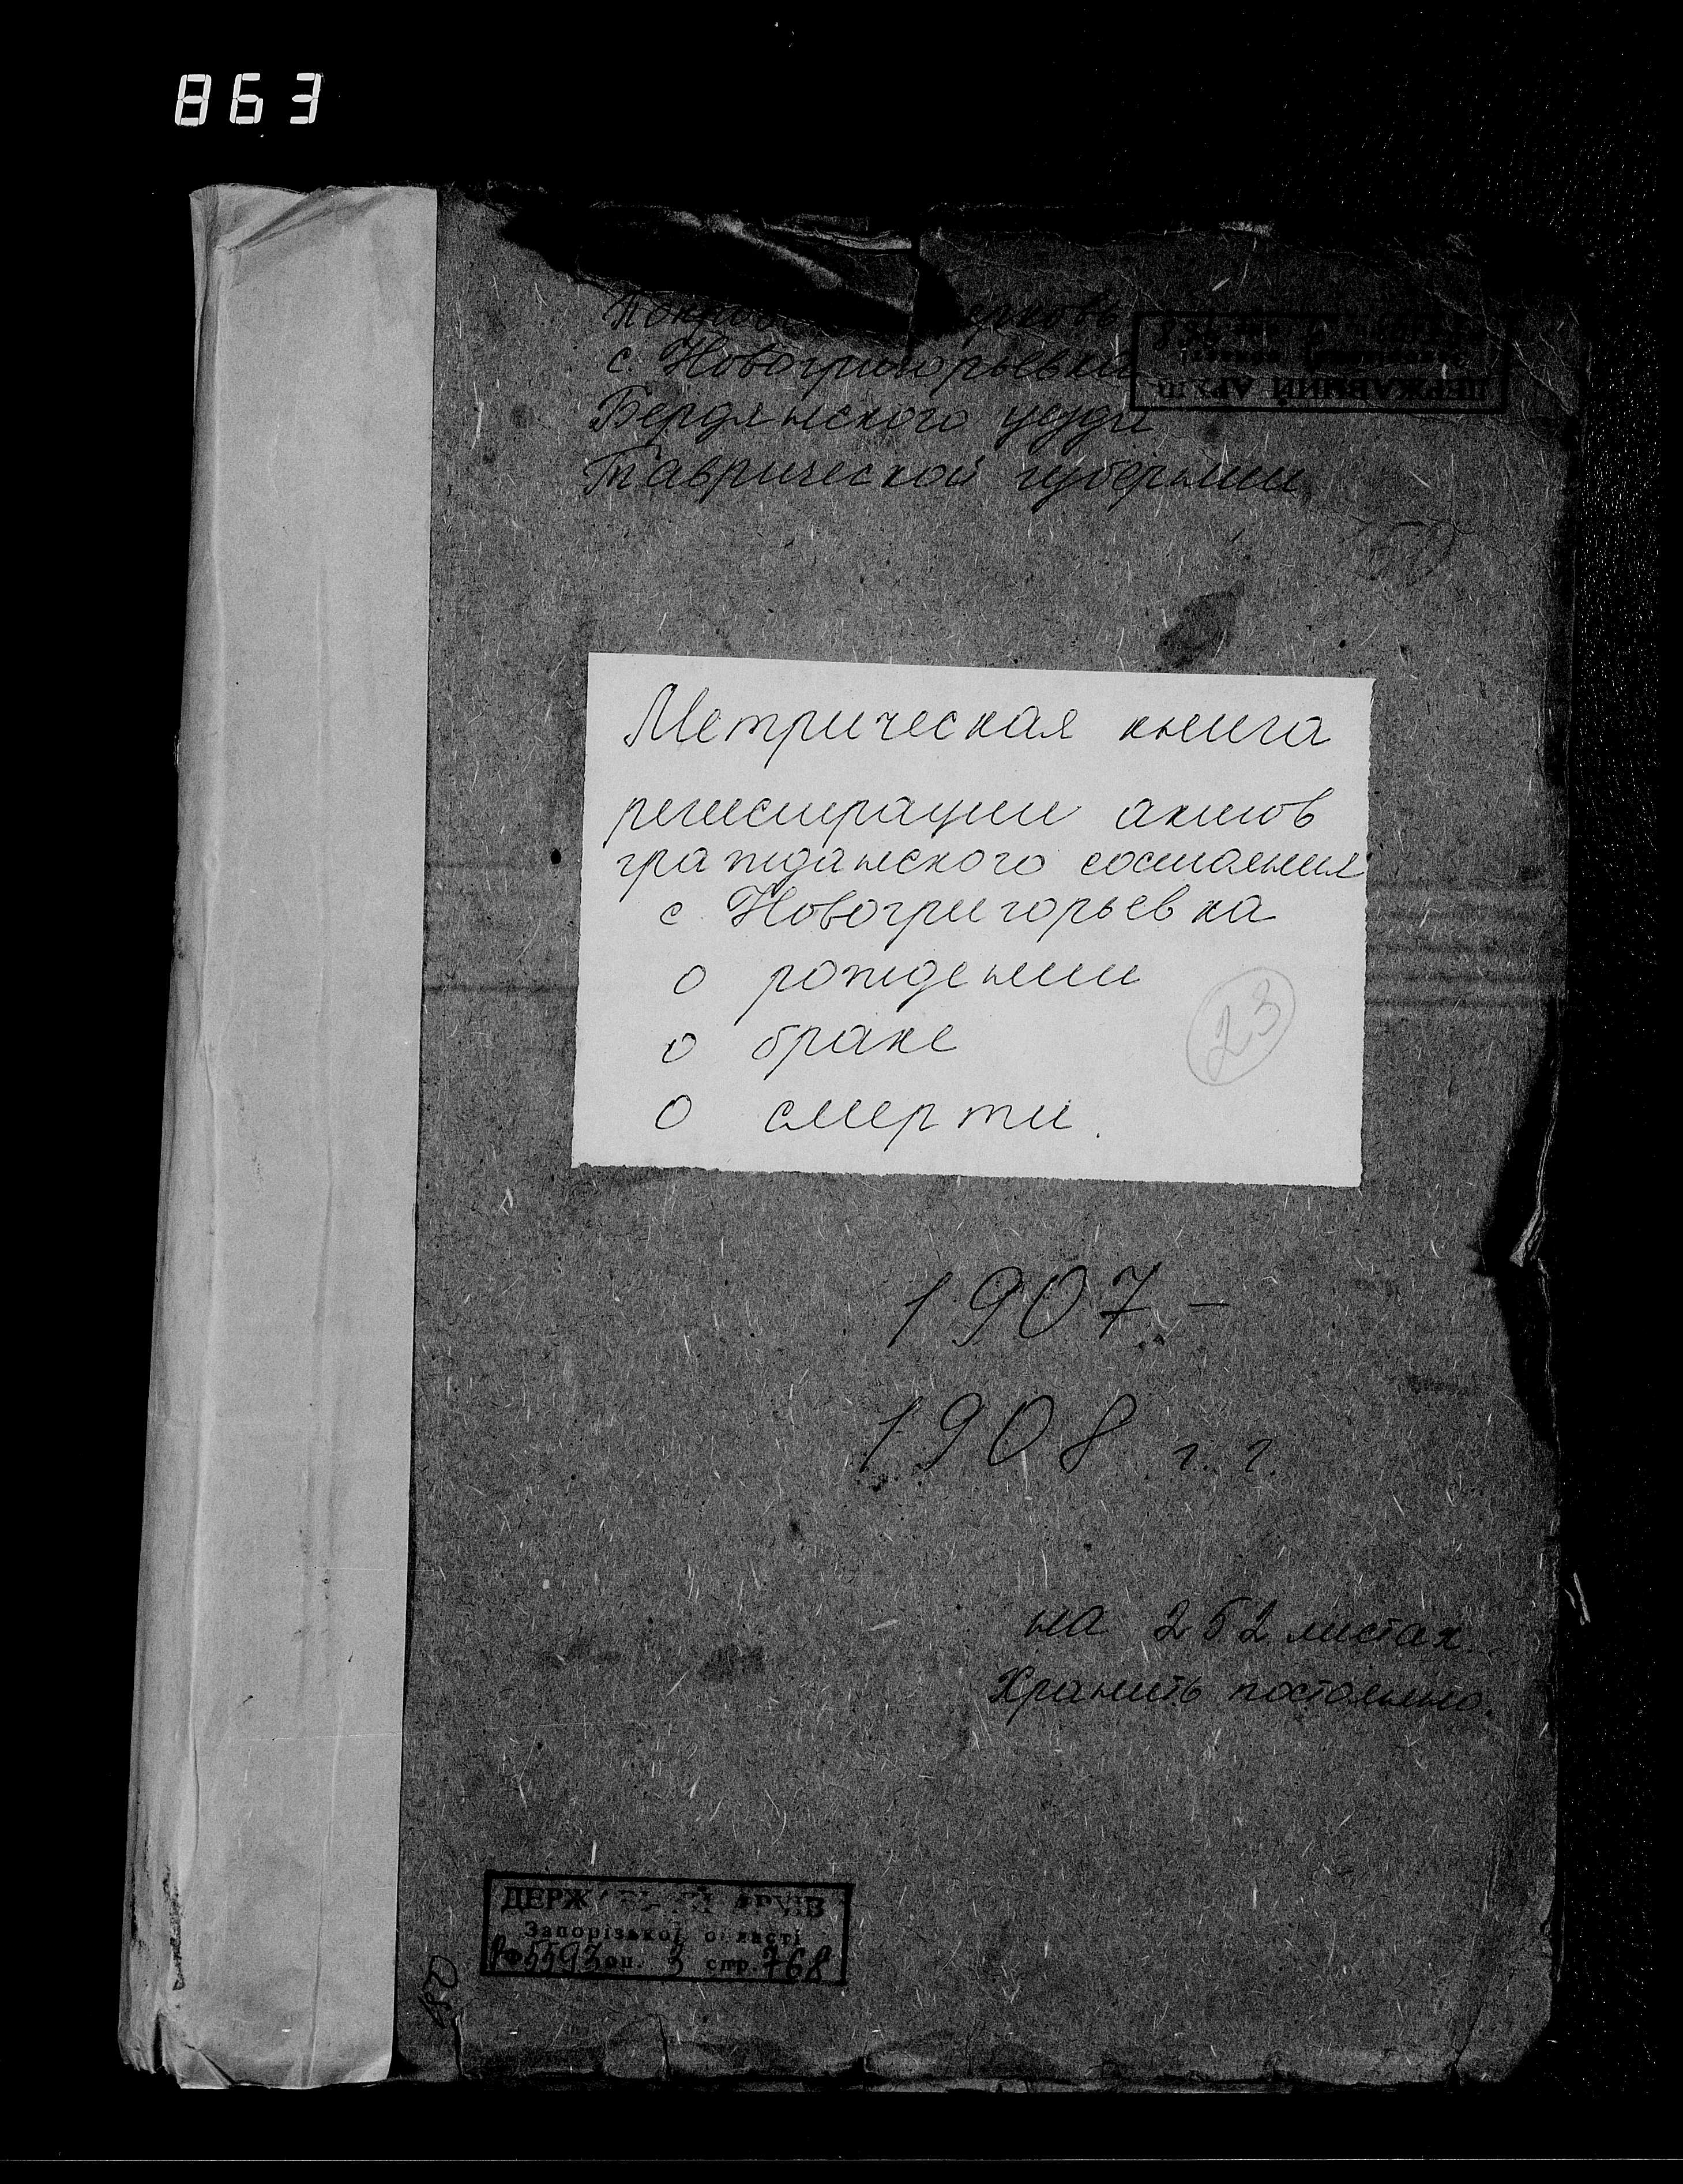 863
с. Новогригорьевка
Бердянского уезда
Таврической губернии
Метрическая книга
регистрации актов
гражданского состояния
с. Новогригорьевка
о рождении
о браке
о смерти.
23
1907 –
1908 г. г.
на 252 листах
Хранить постоянно.
ДЕРЖАВНИЙ АРХІВ
Запорізької області
5593 оп. 3 стр. 768